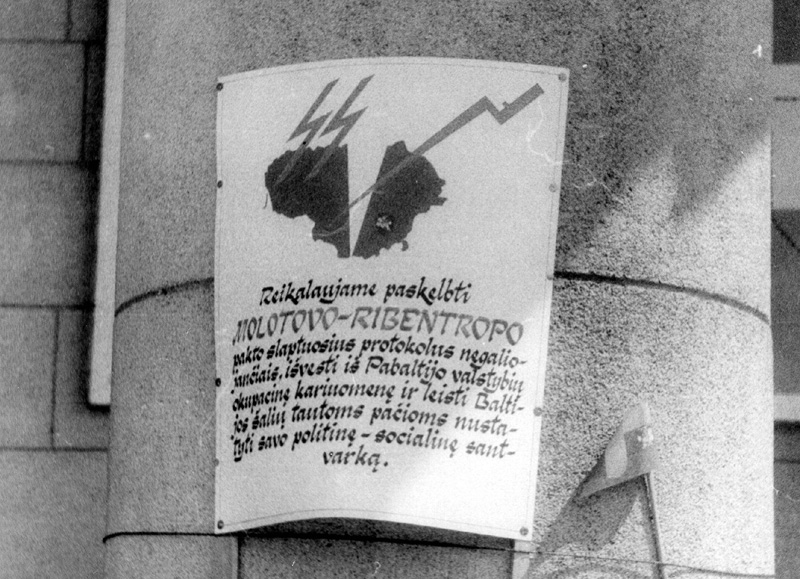 Reikalaujame paskelbti
MOLOTOVO-RIBENTROPO
pakto slaptuosius protokolus negalio-
jančiais, išvesti iš Pabaltijo valstybių
okupacinę kariuomenę ir leisti Balti-
jos šalių tautoms pačioms nusta-
tyti savo politinę - socialinę sant-
varką.